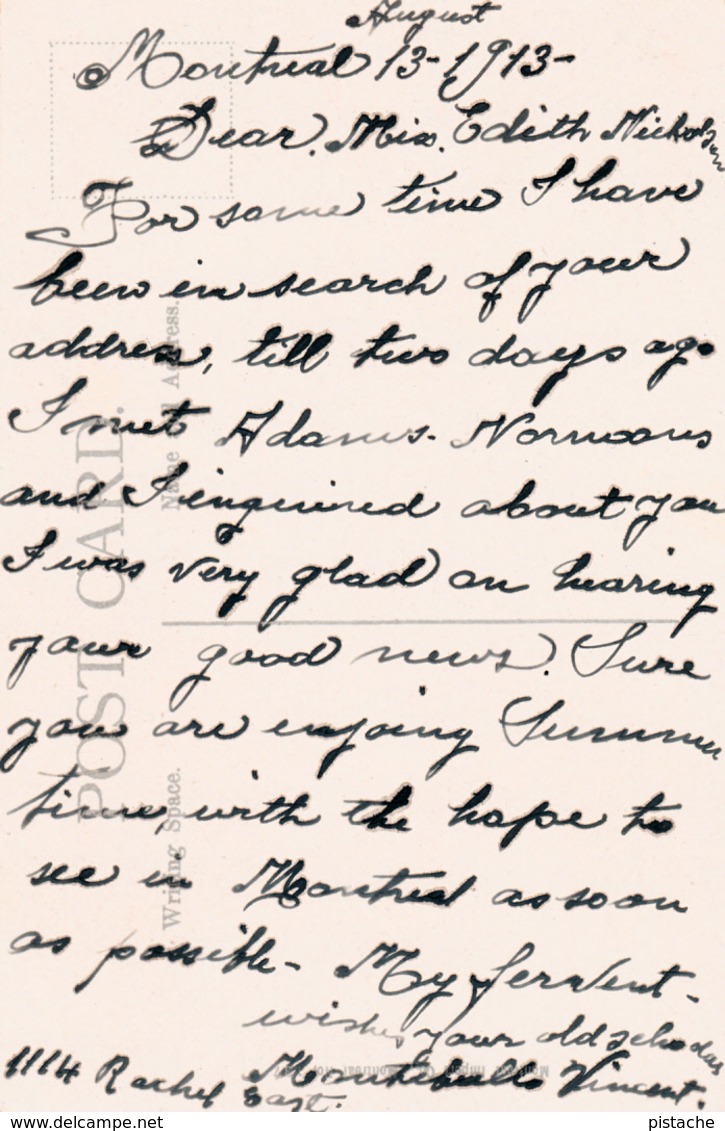 August
Montreal 13-1913-
Dear. Miss. Edith Nicholson
For some time I have
been in search of your
address, till two days ago
I met Adams. Normans
and I enquired about you
I was very glad on hearing
your good news. Sure
you are enjoing Summer
time, with the hope to
see in Montreal as soon
as possible - My fervent -
wishes your old scholar
Montebello Vincent.
1114 Rachel East.
POST CARD.
Name and Address.
Writing Space.
delcampe.net
pistache